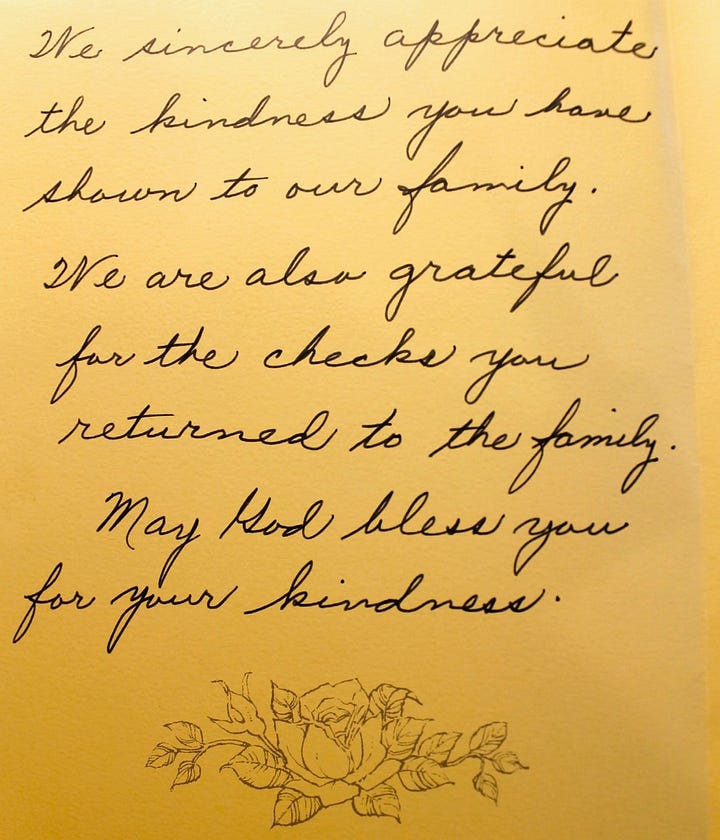 We sincerely appreciate
the kindness you have
shown to our family.
We are also grateful
for the checks you
returned to the family.
May God bless you
for your kindness.